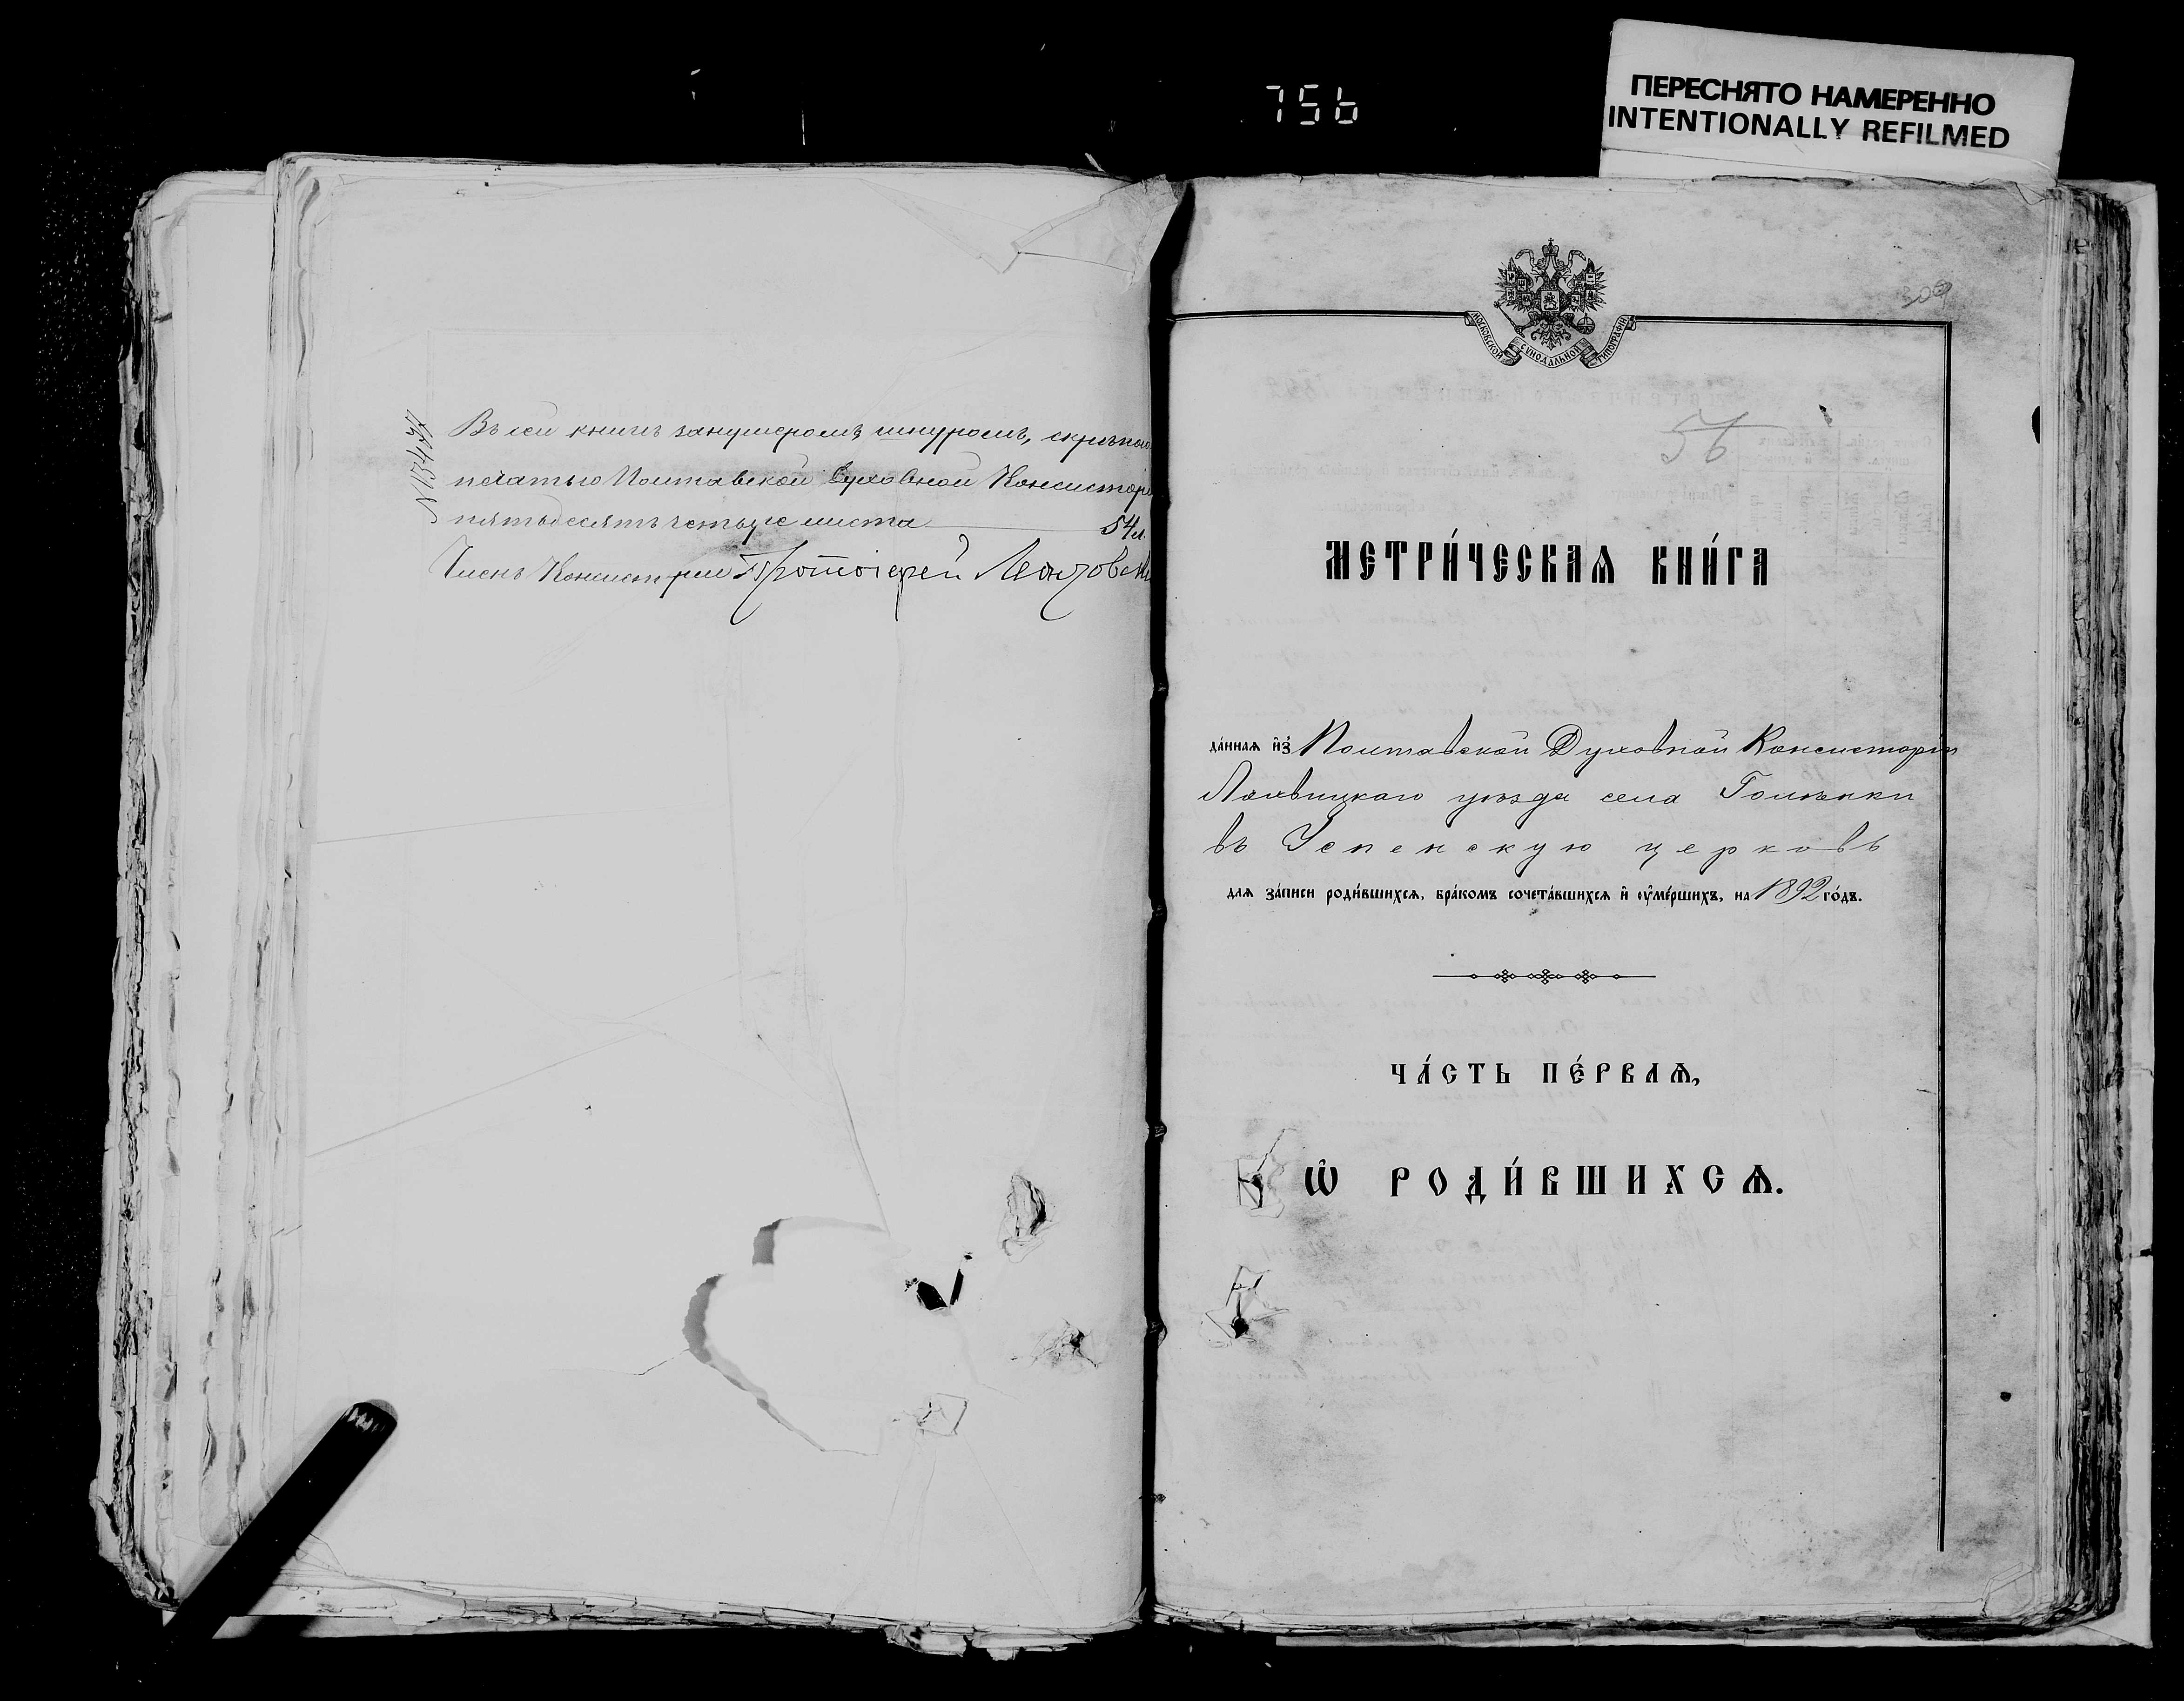 756
ПЕРЕСНЯТО НАМЕРЕННО
INTENTIONALLY REFILMED
Въ сей книгѣ занумеромъ, шнуромъ, скрѣпою
печатью Полтавской Духовной Консисторі
пятьдесятъ четыре листа 54 л.
Членъ Консисторіи Протоіерей
МОСКОВСКОЙ СУНОДАЛЬНОЙ ТИПОГРАФІИ
56
МЕТРИ́ЧЕСКАѦ КНИ́ГА
да́ннаѧ и҆з̾ Полтавской Духовной Консисторіи
Лохвицкаго уѣзда села Голѣнки
въ Успенскую церковь
длѧ за́писи роди́вшихсѧ, бра́комъ сочета́вшихсѧ и҆ ᲂу҆ме́ршихъ, на 1892 го́дъ.
ЧА́СТЬ ПЕ́РВАѦ,
Ѽ РОДИ́ВШИХСѦ.